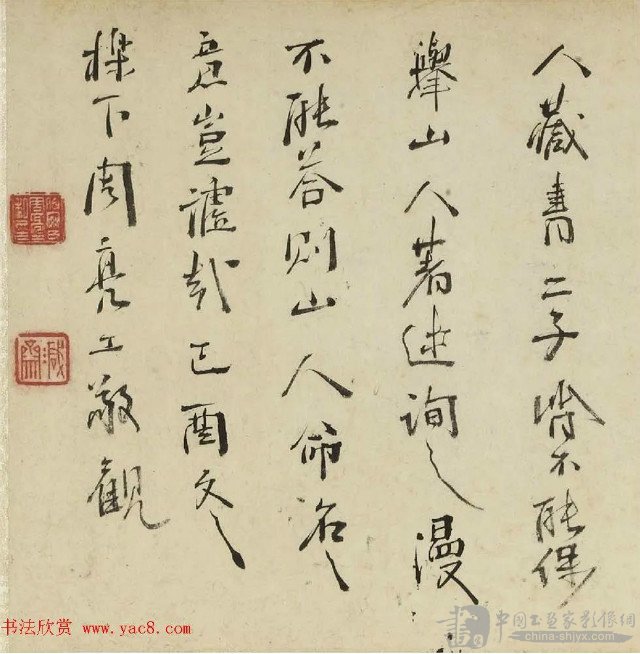 人藏書二子皆不能保
舉山人著述詢之漫
不能荅則山人命名之
意豈謔哉己酉
櫟下周亮工敬觀
书法欣赏 www.yac8.com
中国书画家影像网
china-shjyx.com